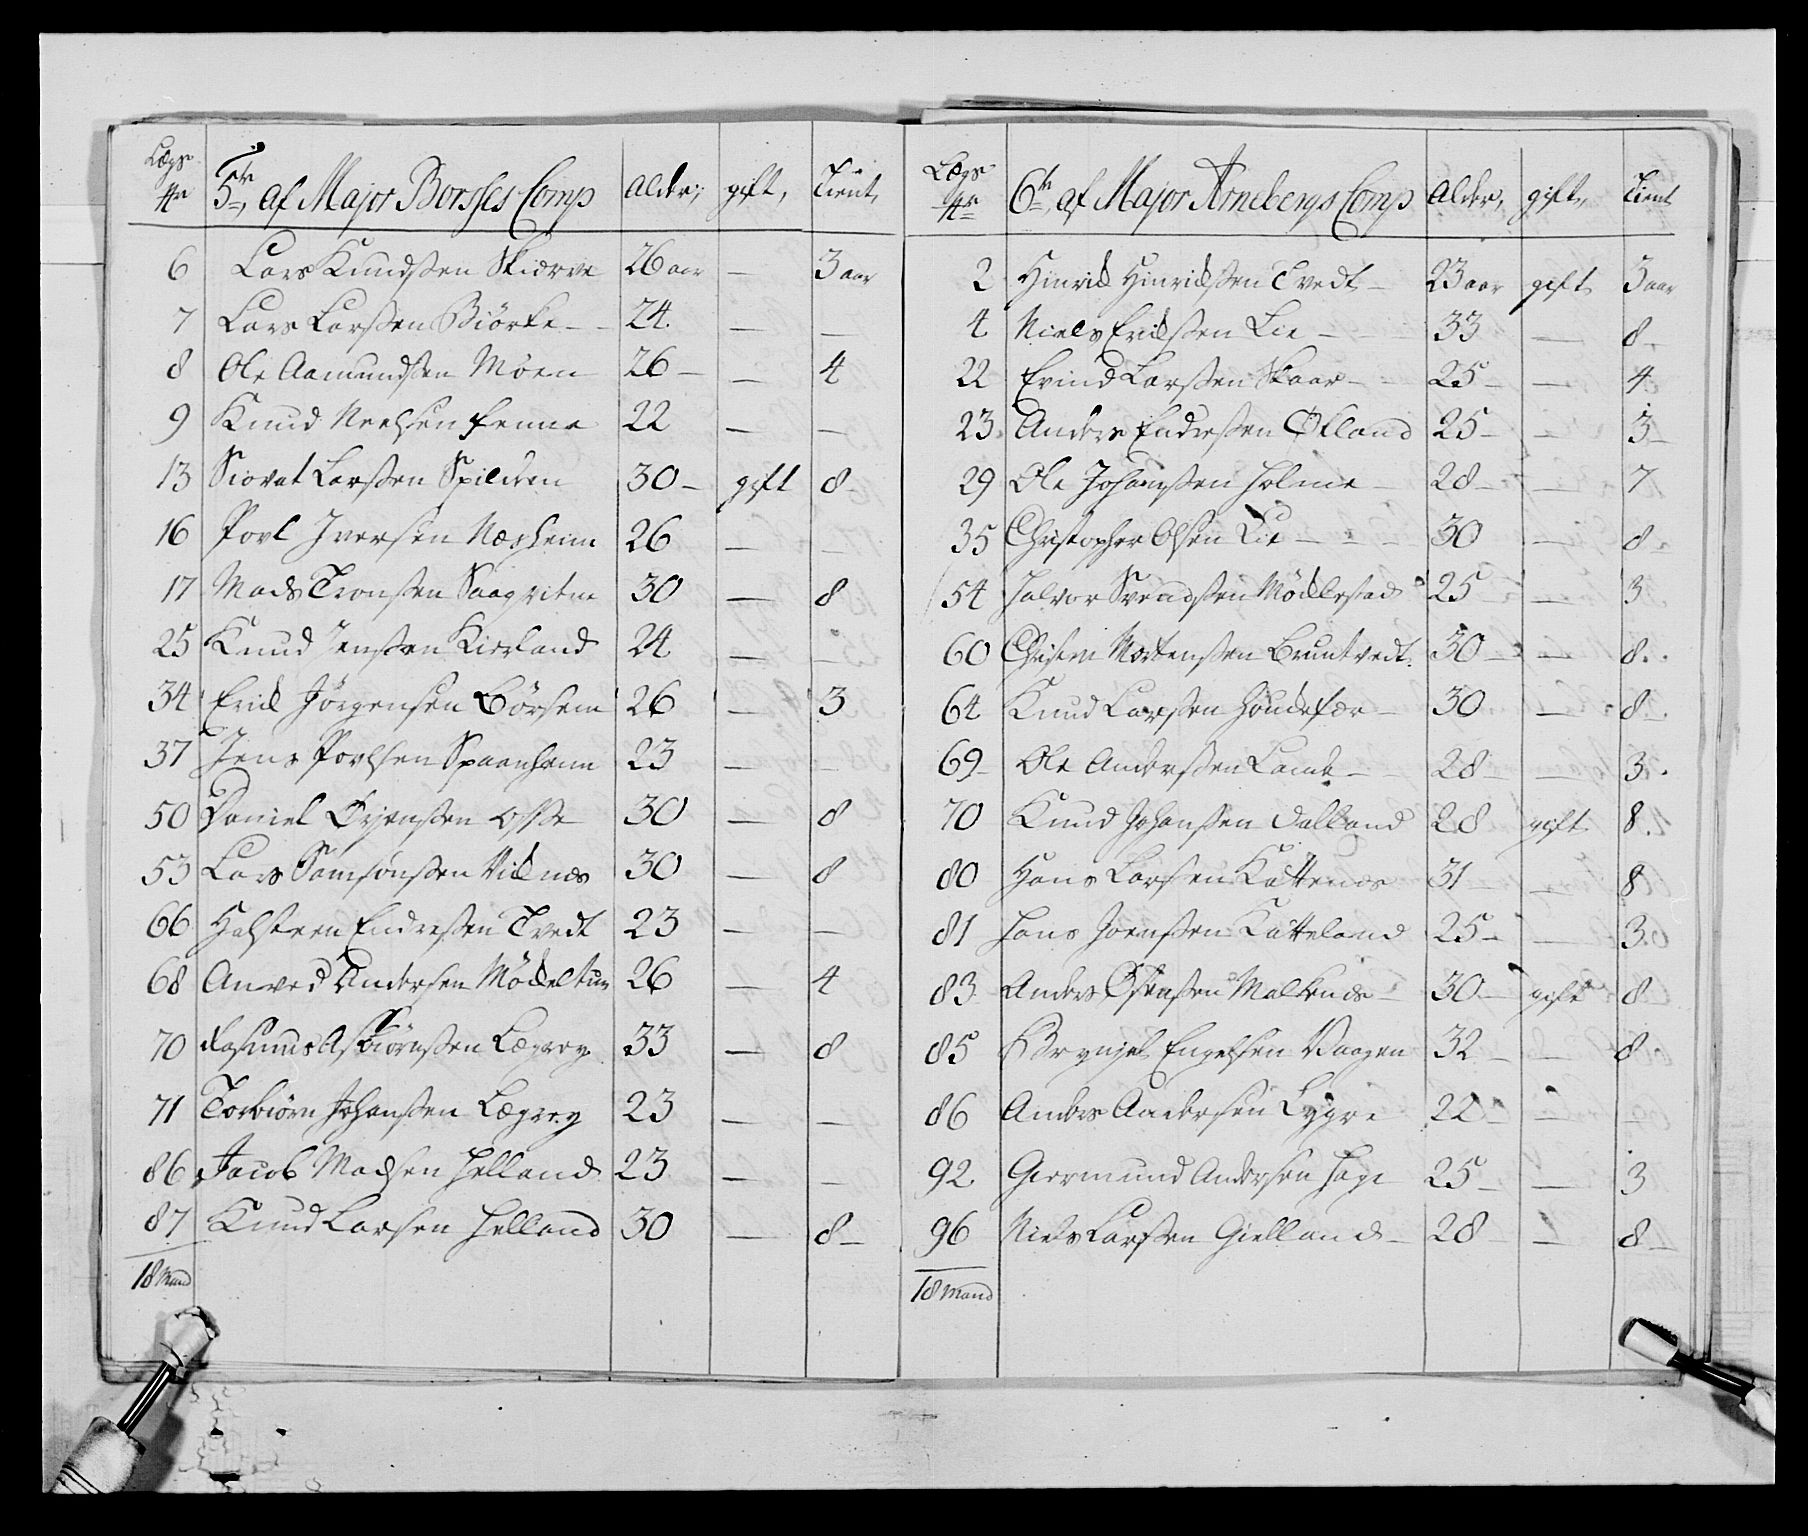 Lægs
Nr 5te, af Major Borsses Comp Alder, gift, Tient,
6 Lars Knudsßen Skierve 26 aar — 3 aar
7 Lars Larsßen Biörke — 24. — —
8 Ole Aamundsßen Möen 26 — — 4
9 Knud Neelsen Fenne 22 — —
13 Siovat Larsßen Spilden 30 — gift 8 —
16 Povl Iversen Næsheim 26 — —
17 Mads Tronsßen Saaqvitne 30 — 8
25 Knud Jensßen Kierland 24 — —
34 Erick Jörgensen Börsem 26 — 3
37 Jens Povlsen Spaanheim 23 — —
50 Daniel Öyensßen 30 — 8
53 Lars Samsonsßen Vicknæs 30 — 8
66 Halsteen Endresßen Tvedt 23 — —
68 Anved Andersen Möckeltun 26 — 4
70 Rasmus Asbiörnsßen Lægrey 33 — 8
71 Torbiörn Johansßen Lægrey 23 — —
86 Jacob Madsen Helland 23 — —
87 Knud Larsen Helland 30 — 8 —
18 Mand
Lægs
Nr 6te, af Major Arnebergs Comp Alder, gift, Tient
2 Hinrick Hinricksßen Tvedt — 23 aar gift 3 aar
4 Niels Ericksßen Lie — 33 — 8 —
22 Evind Larsßen Skaar — 25 — — 4
23. Anders Endresßen Öfland 25 — — 3 —
29 Ole Johansßen Holme — 28 — — 7
35 Christopher Olsen Lie — 30 — 8
54 Halvor Svendsßen Möcklestad 25 — 3
60 Christen Mortensßen Bruntvedt. 30 — — 8.
64 Knud Larsßen Hondefær — 30 — 8 —
69 — Ole Andersßen Lande — 28 — — 3.
70 Knud Johansßen Dalland 28 gift 8.
80 Hans Larsßen Kattenæs 31 — 8
81 Hans Joensßen Katteland 25 — — 3
83 Anders Malkenæs — 30 — gift 8
85 Brynjel Engelsen Vaagen 32 — — 8
86 Anders Andersen Lygre 22 — — —
92. Giermund Andersen Hage 25 — — 3
96 Niels Larsßen Gielland — 28 — 8 —
18 Mand